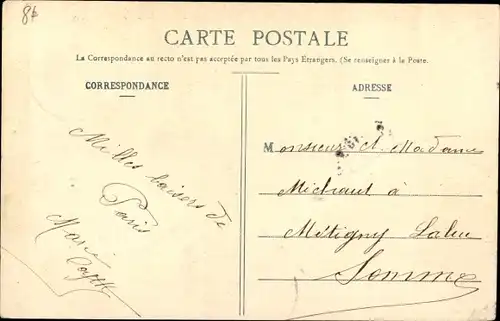 80
CARTE POSTALE
La Correspondance au recto n'est pas acceptée par tous les Pays Étrangers. (Se renseigner à la Poste.
CORRESPONDANCE
ADRESSE
Milles baisers de
Paris
Marie
Monsieur et Madame
Michaut à
Métigny Laleu
Somme